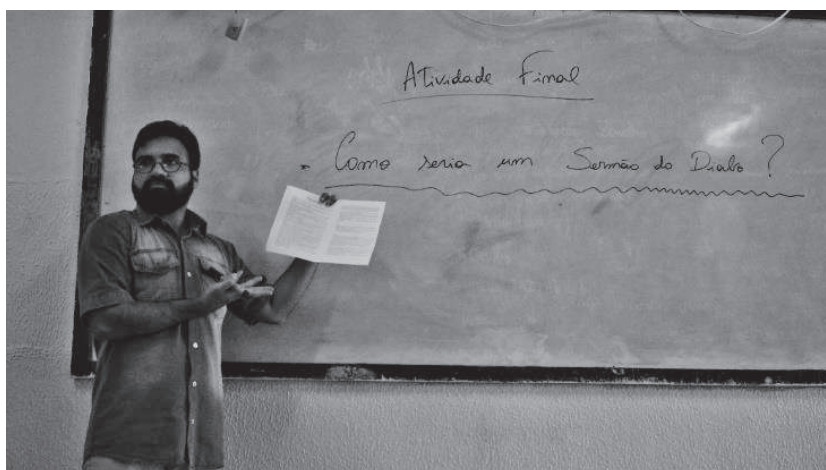 Atividade Final
Como seria um Sermão do Diabo?